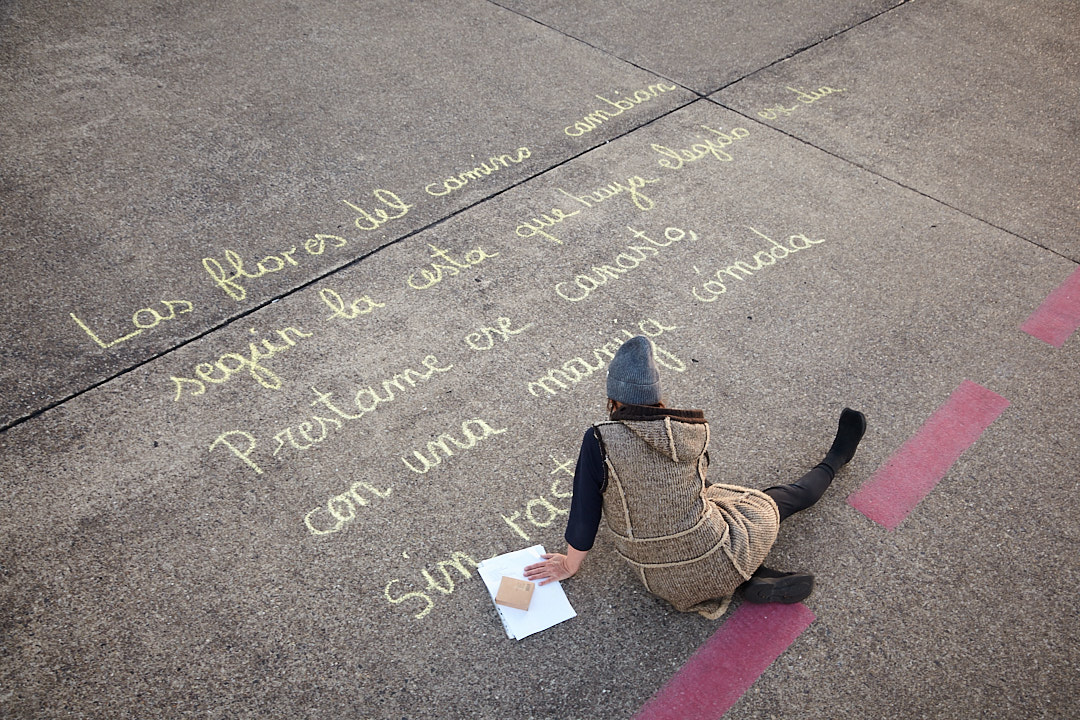 Las flores del camino cambian
según la cesta que haya elegido ese día
Prestame ese canasto,
con una manija cómoda
Sin rast